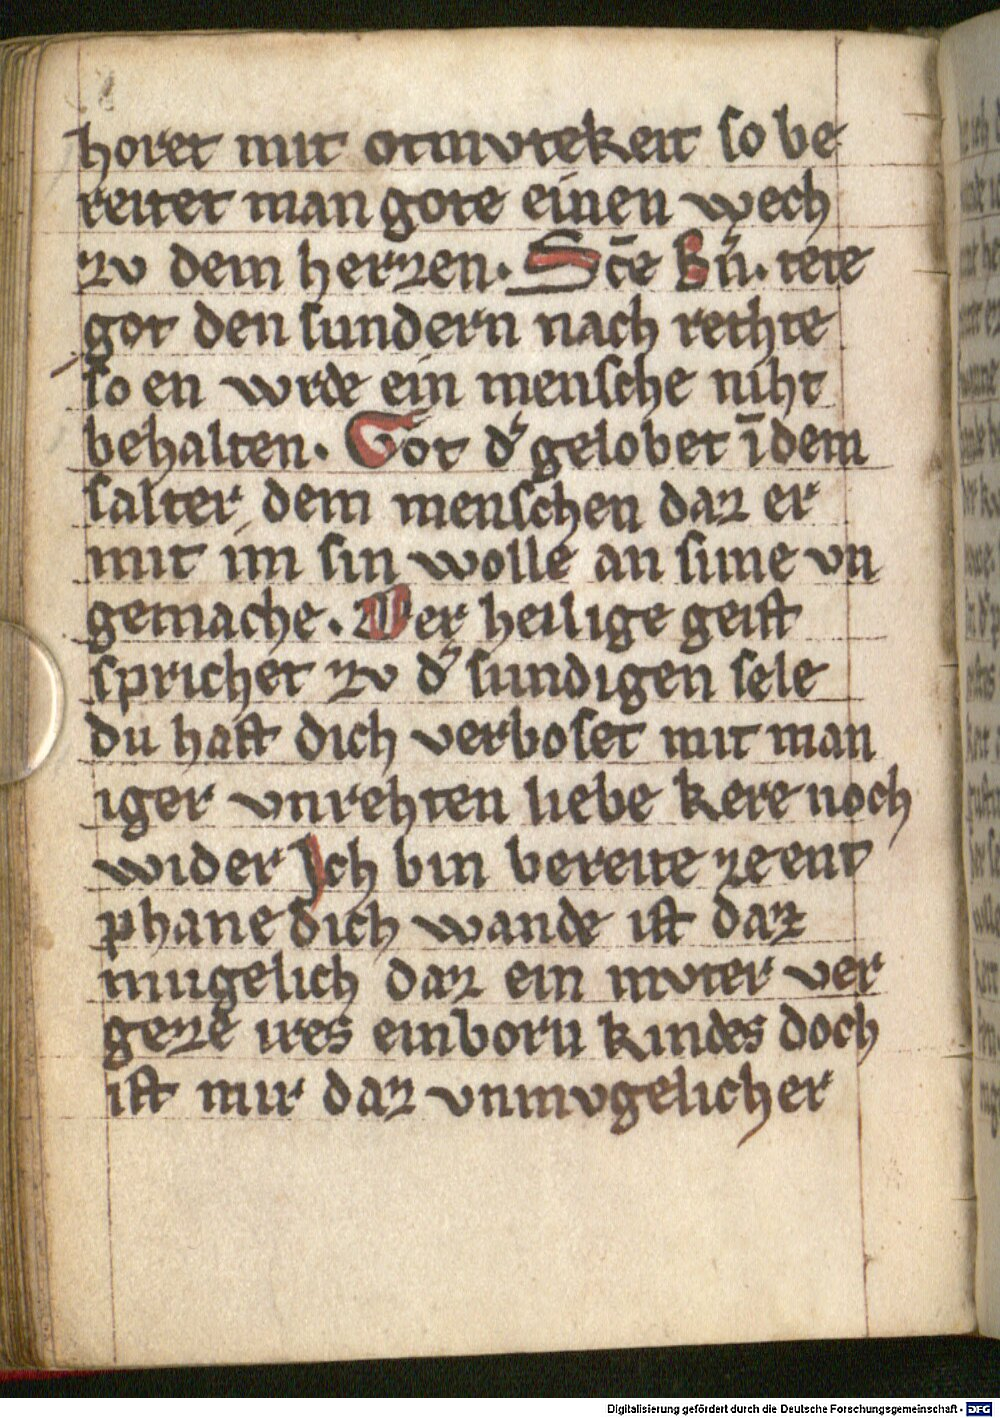 horet mit otmvtekeit so be
reitet man gote einen wech
zv dem herzen. Sc̄e b̾n. tete
got den sundern nach rechte
so en wrde ein mensche niht
behalten. Got d̾ gelobet ī dem
salter dem menschen daz er
mit im sin wolle an sune vn
gemache. Der heilige geist
sprichet zv d̾ sundigen sele
du hast dich verboset mit man
iger vnrehten liebe kere noch
wider Ich bin bereite ze ent
phane dich wande ist daz
mugelich daz ein mvter ver
geze ires einborn kindes doch
ist mir daz vnmvgelicher
Digitalisierung gefördert durch die Deutsche Forschungsgemeinschaft - DFG